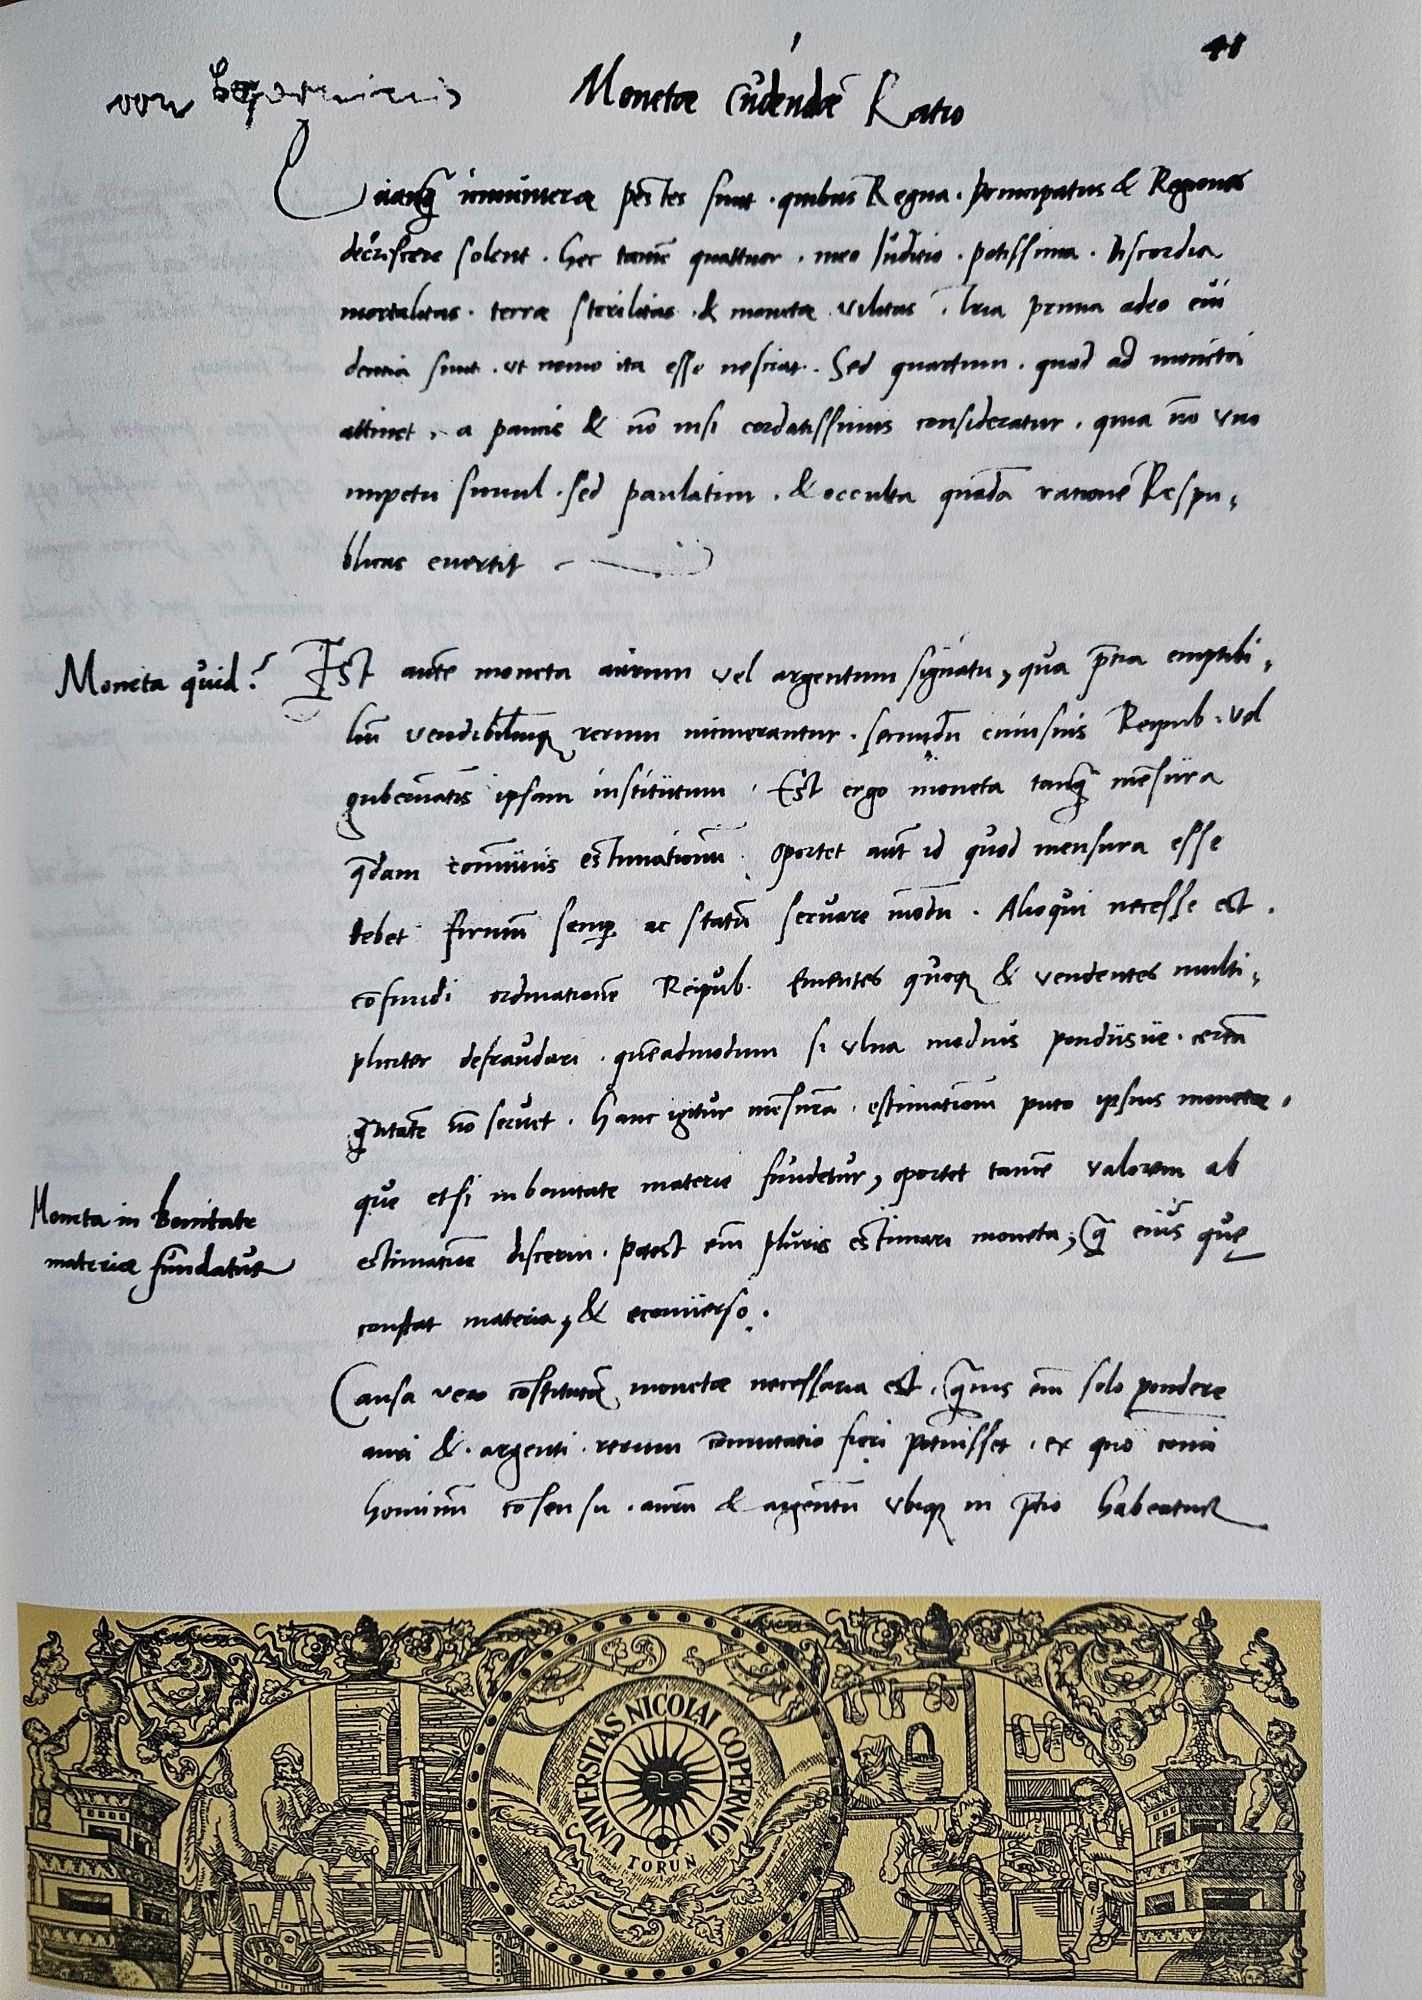 48
Monetæ cudendæ Ratio
Quanq̃ innumeræ pestes sunt · quibus Regna · principatus & Regiones
decrescere solent · hec tamẽ quattuor · meo Iuditio · potissima · discordia
mortalitas · terræ sterilitas · & monetæ vilitas · tria prima adeo evi
dentia sunt · ut nemo ita esse nesciat · Sed quartum · quod ad monetã
attinet · a paucis & nõ nisi cordatissimis consideratur · quia nõ uno
impetu simul · sed paulatim · & occulta quadã ratione Respu,
blicas evertit
Moneta quid?
Est autẽ moneta aurum vel argentum signatũ, qua p̃tia emptibi,
liũ vendibiliumq̃ rerum numerantur · secundũ cuiusvis Reipub · vel
gubernãtis ipsam institutum · Est ergo moneta tanq̃ mẽsura
q̃dam cõmunis estimationũ · oportet aut̃ id quod mensura esse
debet firmũ semp̱ ac statũ servare modũ · Alioqui necesse est ·
cõfundi ordinationẽ Reipub · Ementes quoq̃ & vendentes multi,
pliciter defraudari · quẽadmodum si ulna modius pondusve · certã
q̃ntitatẽ nõ servet · Hanc igitur mẽsurã · estimationũ puto ipsius monetæ ·
que etsi in bonitate materie fundetur, oportet tamẽ valorem ab
Moneta in bonitate
materiæ fundatur
estimatione discerni · potest em̃ pluris estimari moneta, q̃ eius que
constat materia, & econverso ·
Causa vero cõstitutæ monetæ necessaria est · q̃vis em̃ solo pondere
auri & · argenti · rerum cõmutatio fieri potuisset · ex quo cõmi
hominũ cõsensu · aurũ & argentũ ubiq̃ in p̃tio habeatur
UNIVERSITAS NICOLAI COPERNICI
TORUŃ